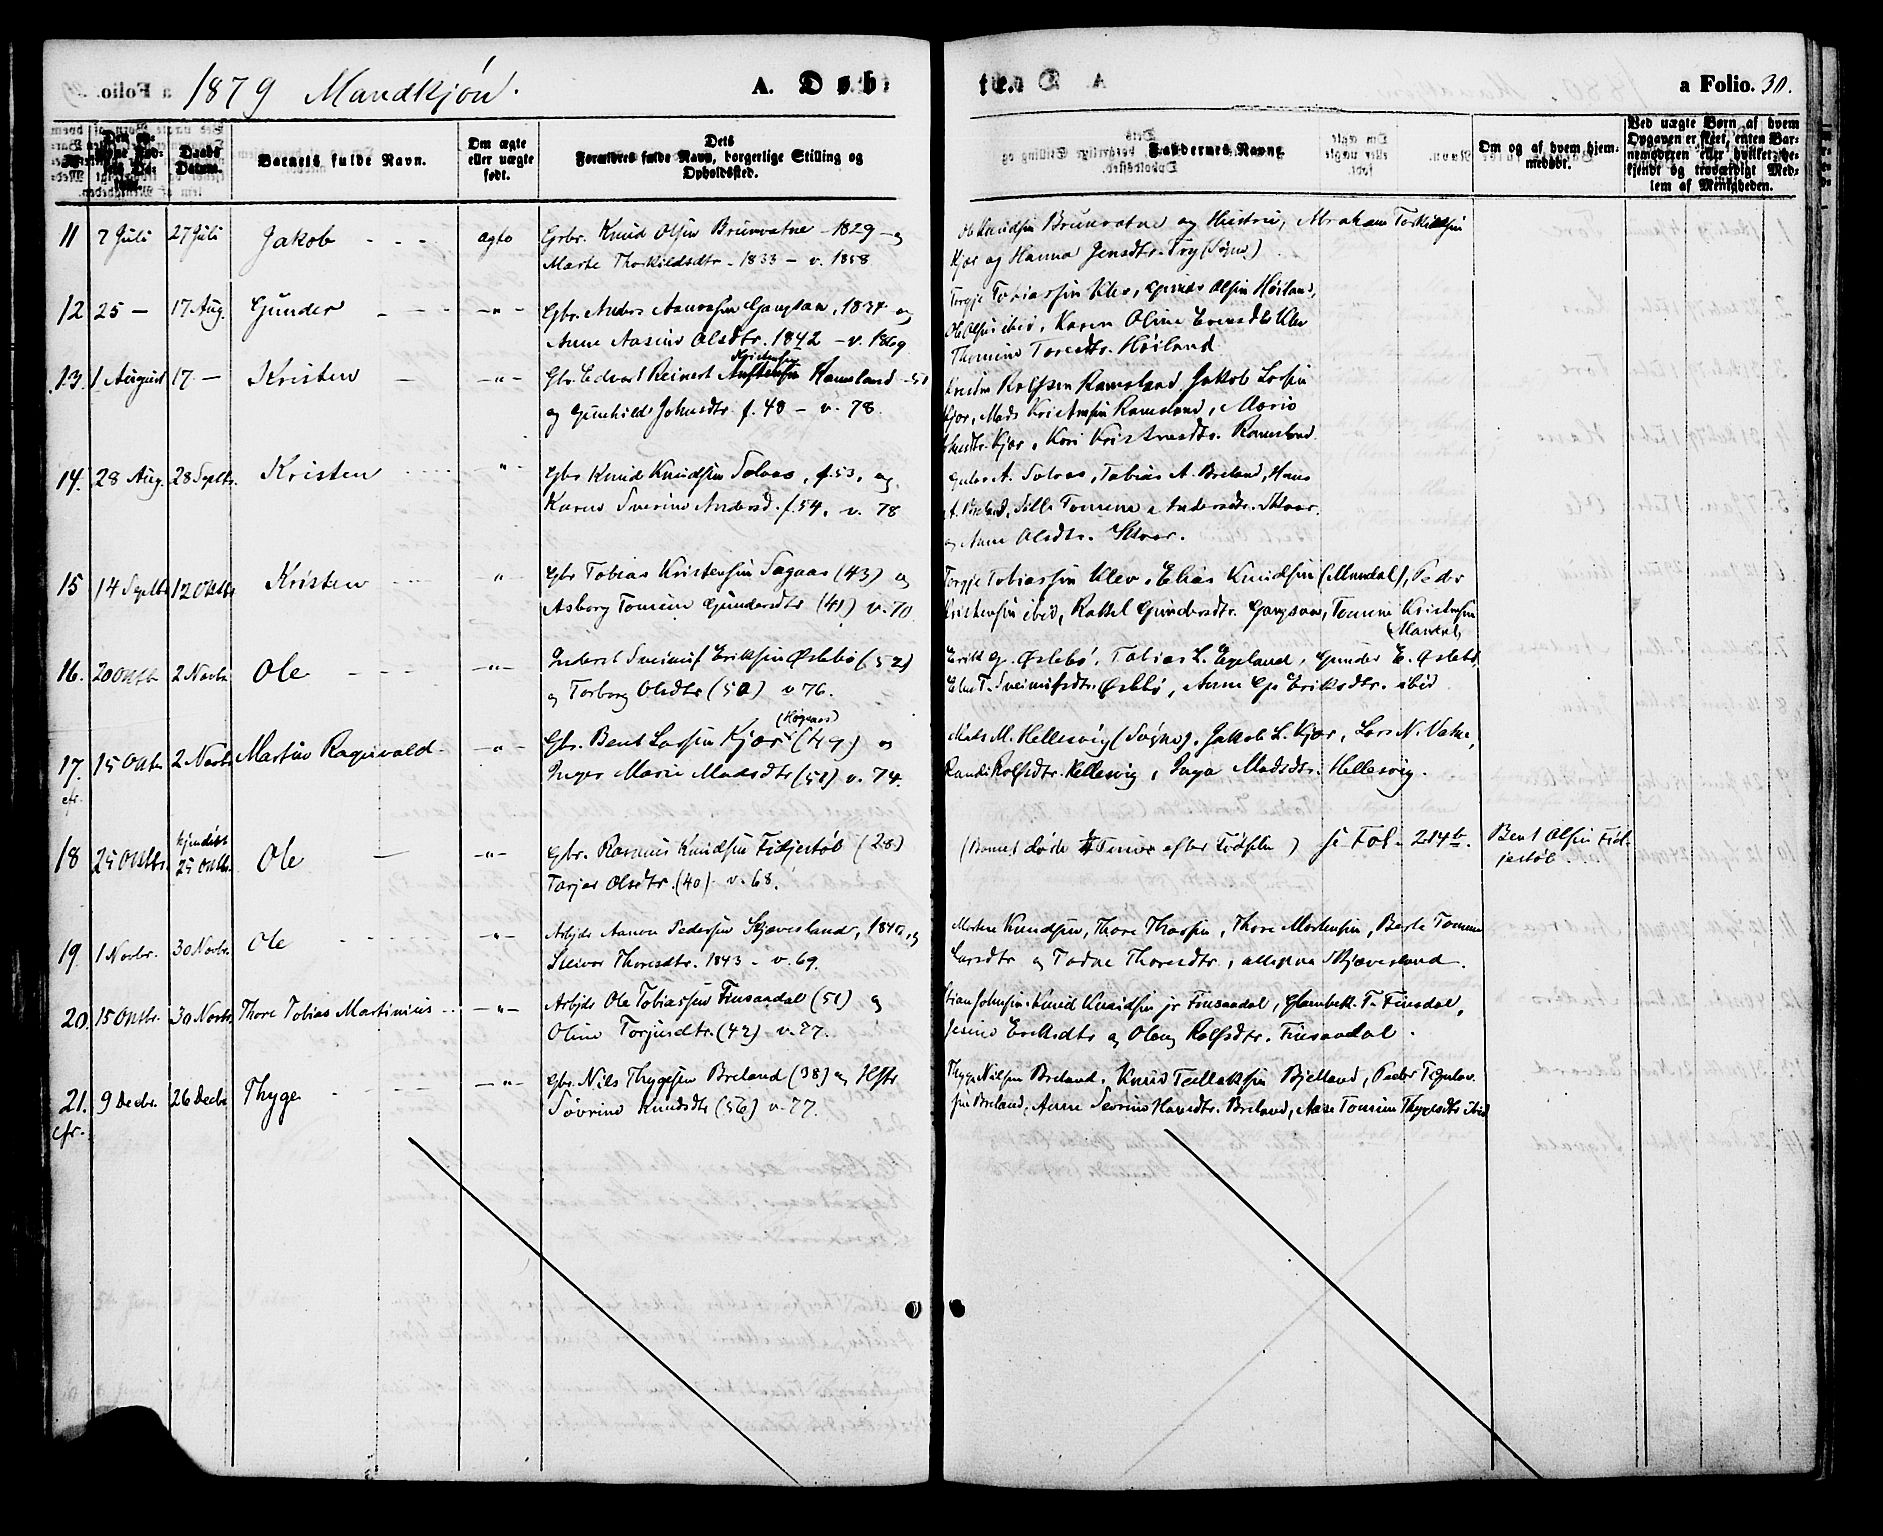 1879 Mandkjøn.
A. Døbte.
a Folio. 30.
Daabs Datum.
Barnets fulde Navn.
Om ægte eller uægte født.
Dets
Forældres fulde Navn, borgerlige Stilling og
Opholdssted.
Faddernes Navne.
Om og af hvem hjem-
medøbt.
Ved uægte Børn, af hvem
Opgaven er skeet, enten Bar-
nemoderen eller hvilket be-
kjendt og troværdigt Med-
lem af Menigheden.
11 7 Juli 27 Juli Jakob ægte Gbr. Knud Olsen Brunvatne 1829 og
Marte Thorkildsdtr. 1833 - v. 1858
Ole Knudsen Brunvatne og Hustru, Abraham Torkildsen
Kjær og Hanna Jensdtr. Try (Søgne)
12 25 — 17 Aug. Gunder — " — Gbr. Anders Aanensen Gangsaa, 1834 og
Anne Aasine Olsdtr. 1842 - v. 1869
Torgje Tobiassen Klev, Gunder Olsen Høiland,
Ole Olsen ibid, Karen Oline Evensdtr Klev
Thomine Toresdtr. Høiland
13. 1 August 17 — Kristen — " — Gbr. Edvart Reinert Kristensen Ramsland - 51
og Gunhild Johnsdtr. f. 48 - v. 78.
Kristen Rolfsen Ramsland, Jakob Larsen
Kjær, Mads Kristensen Ramsland, Marie
Kjær, Kari Kristensdtr. Ramsland.
14. 28 Aug. 28 Septbr. Kristen " Gbr Knud Knudsen Solaas, f. 53, og
Karen Severine Andersd. f. 54. v. 78
A. Solaas, Tobias A. Breland, Hans
A. Breland, Sille Tomine Andersdtr. Skaar
og Anne Olsdtr. Skaar.
15 14 Septbr 12 Oktbr Kristen " Gbr Tobias Kristensen Sagaas (43) og
Asborg Tomine Gundersdtr (41) v. 70
Torgje Tobiassen Klev, Elias Knudsen (Mandal), Peder
Kristensen ibid, Rakel Gundersdtr. Gangsaa, Tomine Kristensen
(Mandal)
16. 20 Oktb. 2 Novbr Ole — " — Inderst Sveinuf Eriksen Øslebø (52)
og Torborg Olsdtr (50) v 76.
Erik G. Øslebø, Tobias L. Egeland, Gunder E. Øslebø,
Elen T. Sveinufsdtr. Øslebø, Anne Gs Eriksdtr. ibid
17. cfr. 15 Oktbr. 2 Novbr Martin Ragnvald — " — Gbr. Bent Larsen Kjær (49) og
Inger Marie Madsdtr (51) v. 74.
Mads M. Hellesvig (Søgne), Jakob L. Kjær, Lars N. Vatne,
Randi Rolfsdtr. Hellesvig, Inga Madsdtr. Hellesvig.
18 25 Oktbr. hjemdøbt
25 Oktbr. Ole — " — Gbr. Rasmus Knudsen Fidjestøl (28)
Tarjer Olsdtr. (40). v. 68.
(Barnet døde Timer efter Fødselen) se Fol. 214 b. Bent Olsen Fid-
jestøl.
19. 1 Novbr. 30 Novbr. Ole — " — Arbjdr Aanon Pedersen Skjævesland, 1840, og
Thoresdtr. 1843 - v. 69.
Morten Knudsen, Thore Thorsen, Thore Mortensen, Berte Tomine
Larsdtr og Todne Thoresdtr, allesmn Skjævesland.
20. 15 Oktbr. 30 Novbr. Thore Tobias Martinius — " — Arbjdr Ole Tobiassen Finsaadal (51) og
Oline Torjusdtr. (42) - v. 77.
Stian Johnsen, Knud Knudsen jr Finsaadal, Glambek T. Finsdal,
Jesine Eriksdtr og Oleug Rolfsdtr. Finsaadal.
21. cfr. 9 Decbr. 26 Decbr Thyge — " — Gbr. Nils Thygesen Breland (38) og Hstr
Søvrine Knudsdtr (56) v. 77.
Thyge Nilsen Breland, Knud Tellaksen Bjelland, Peder Tegulov-
sen Breland, Anne Severine Hansdtr. Breland, Aase Tomine Thygesdtr ibid